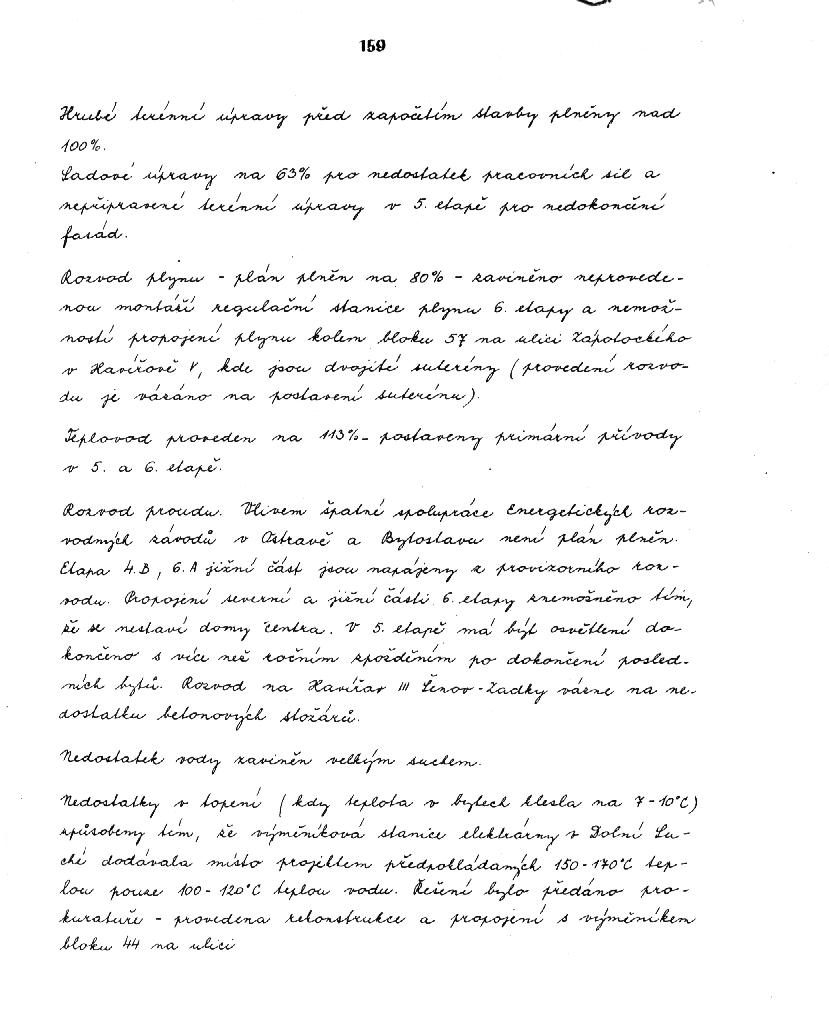 159
Hrubé terénní úpravy před započetím stavby plněny nad
100%.
Sadové úpravy na 63% pro nedostatek pracovních sil a
nepřipravené terénní úpravy v 5. etapě pro nedokončení
fasád.
Rozvod plynu - plán plněn na 80% - zaviněno neprovede-
nou montáží regulační stanice plynu 6. etapy a nemož-
ností propojení plynu kolem bloku 57 na ulici Zápotockého
v Havířově V, kde jsou dvojité suterény (provedení rozvo-
du je vázáno na postavení suterénu).
Teplovod proveden na 113% - postaveny primární přívody
v 5. a 6. etapě.
Rozvod proudu. Vlivem špatné spolupráce Energetických roz-
vodných závodů v Ostravě a Bytostavu není plán plněn.
Etapa 4.B, 6.A jižní část jsou napájeny z provizorního roz-
vodu. Propojení severní a jižní části 6. etapy znemožněno tím,
že se nestaví domy centra. V 5. etapě má být osvětlení do-
končeno s více než ročním zpožděním po dokončení posled-
ních bytů. Rozvod na Havířov III Šenov - Zadky vázne na ne-
dostatku betonových stožárů.
Nedostatek vody zaviněn velkým suchem.
Nedostatky v topení (kdy teplota v bytech klesla na 7-10°C)
způsobeny tím, že výměníková stanice elektrárny v Dolní Su-
ché dodávala místo projektem předpokládaných 150-170°C tep-
lou pouze 100-120°C teplou vodu. Řešení bylo předáno pro-
kuratuře - provedena rekonstrukce a propojení s výměníkem
bloku 44 na ulici